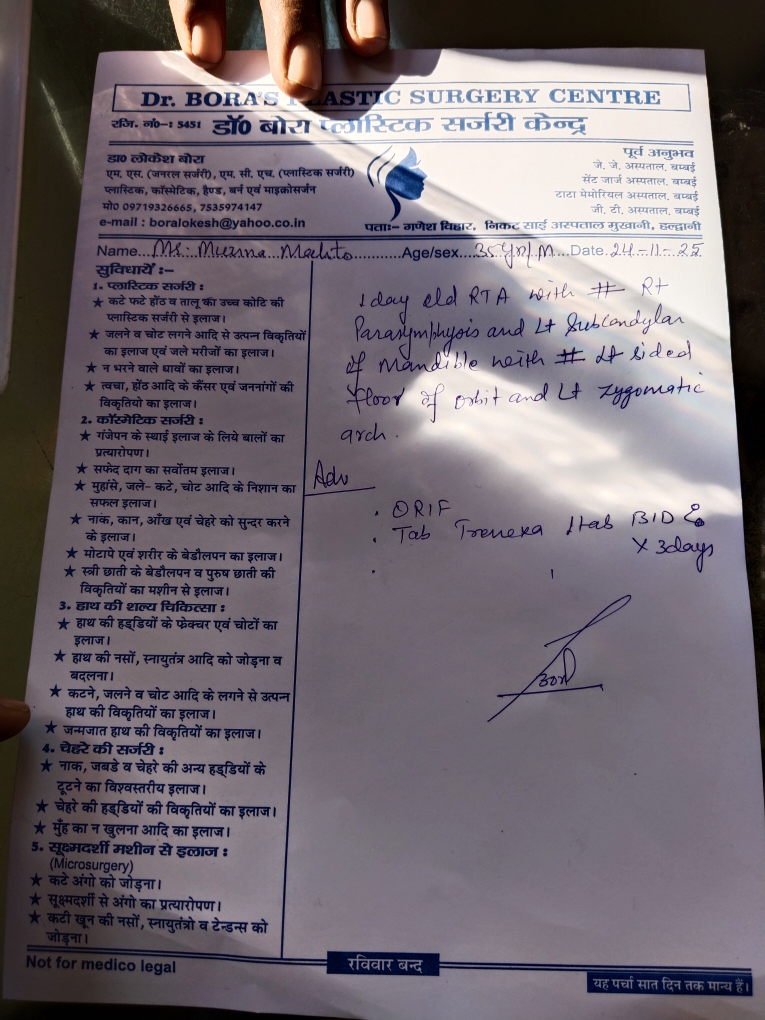 Dr. BORA'S PLASTIC SURGERY CENTRE
रजि. नं०-: 5451 डॉ0 बोरा प्लास्टिक सर्जरी केन्द्र
डा0 लोकेश बोरा
एम. एस. (जनरल सर्जरी), एम. सी. एच. (प्लास्टिक सर्जरी)
प्लास्टिक, कॉस्मेटिक, हैण्ड, बर्न एवं माइक्रोसर्जन
मो0 09719326665, 7535974147
e-mail : boralokesh@yahoo.co.in
पूर्व अनुभव
जे. जे. अस्पताल, बम्बई
सेंट जार्ज अस्पताल, बम्बई
टाटा मेमोरियल अस्पताल, बम्बई
जी. टी. अस्पताल, बम्बई
पताः- गणेश विहार, निकट साई अस्पताल मुखानी, हल्द्वानी
Name...Mr. Munna Mahto..........Age/sex...35 Yrs/M...Date.24-11-25
सुविधायें :-
1. प्लास्टिक सर्जरी :
★ कटे फटे होंठ व तालू का उच्च कोटि की
प्लास्टिक सर्जरी से इलाज।
★ जलने व चोट लगने आदि से उत्पन्न विकृतियों
का इलाज एवं जले मरीजों का इलाज।
★ न भरने वाले घावों का इलाज।
★ त्वचा, होंठ आदि के कैंसर एवं जननांगों की
विकृतियो का इलाज।
2. कॉस्मेटिक सर्जरी :
★ गंजेपन के स्थाई इलाज के लिये बालों का
प्रत्यारोपण।
★ सफेद दाग का सर्वोतम इलाज।
★ मुहांसे, जले- कटे, चोट आदि के निशान का
सफल इलाज।
★ नाक, कान, आँख एवं चेहरे को सुन्दर करने
के इलाज।
★ मोटापे एवं शरीर के बेडौलपन का इलाज।
★ स्त्री छाती के बेडौलपन व पुरुष छाती की
विकृतियों का मशीन से इलाज।
3. हाथ की शल्य चिकित्सा :
★ हाथ की हड्डियों के फ्रेक्चर एवं चोटों का
इलाज।
★ हाथ की नसों, स्नायुतंत्र आदि को जोड़ना व
बदलना।
★ कटने, जलने व चोट आदि के लगने से उत्पन्न
हाथ की विकृतियों का इलाज।
★ जन्मजात हाथ की विकृतियों का इलाज।
4. चेहरे की सर्जरी :
★ नाक, जबडे व चेहरे की अन्य हड्डियों के
टूटने का विश्वस्तरीय इलाज।
★ चेहरे की हड्डियों की विकृतियों का इलाज।
★ मुँह का न खुलना आदि का इलाज।
5. सूक्ष्मदर्शी मशीन से इलाज :
(Microsurgery)
★ कटे अंगो को जोड़ना।
★ सूक्ष्मदर्शी से अंगो का प्रत्यारोपण।
★ कटी खून की नसों, स्नायुतंत्रो व टेन्डन्स को
जोड़ना।
1 day old RTA with # Rt
Parasymphysis and Lt Subcondylar
of Mandible with # Lt sided
floor of orbit and Lt zygomatic
arch.
Adv
. ORIF
. Tab Trenexa 1tab BID
X 3days
Not for medico legal
रविवार बन्द
यह पर्चा सात दिन तक मान्य हैं।